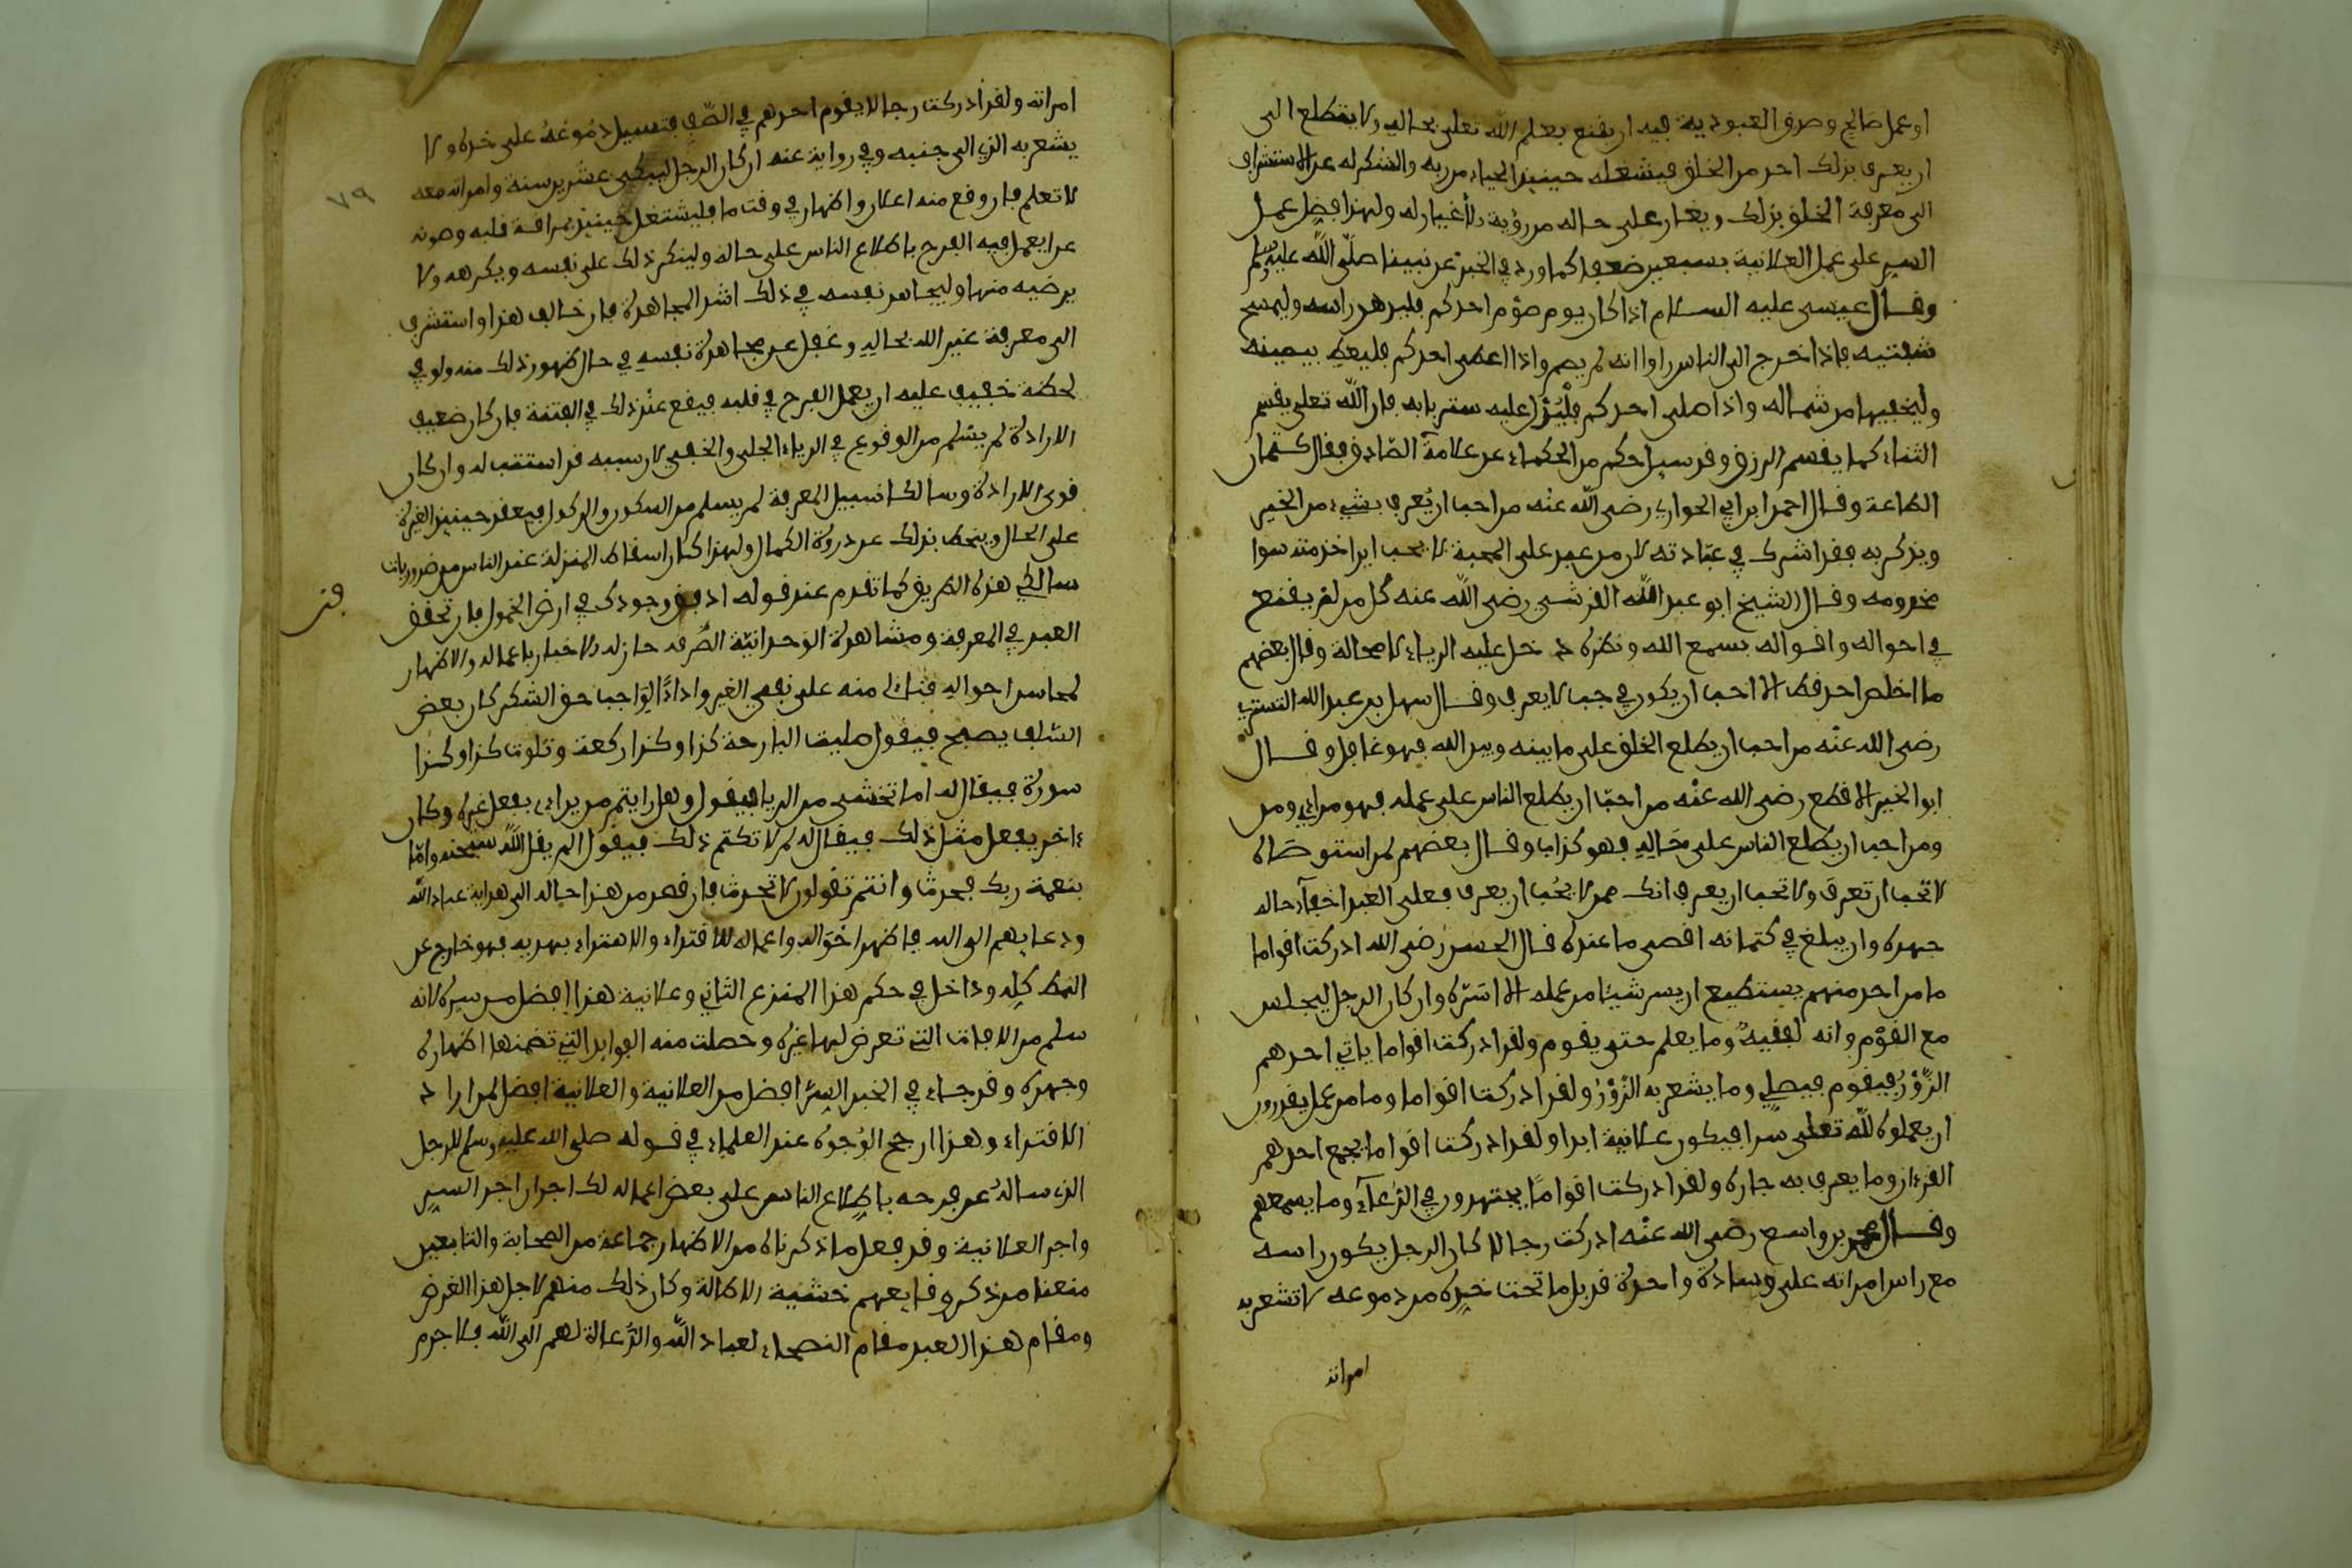 او عمل صالح وصدق العبودية فيه ان يقنع بعلم الله تعلى بحاله ولا يتطلع الى
ان يعرف بذلك احد من الخلق فيشغله حينيذ الحياء من ربه والشكر له عن الاستشراف
الى معرفة الخلق بذلك ويغار على حاله من رؤية الاغيار له ولهذا فضل عمل
السر على عمل العلانية بسبعين ضعفا كما ورد في الخبر عن نبينا صلى الله عليه وسلم
وقال عيسى عليه السلام اذا كان يوم صوم احدكم فليدهن راسه وليمسح
شفتيه فاذا خرج الى الناس راوا انه لم يصم واذا اعطى احدكم فليعط بيمينه
وليخفيها من شماله واذا صلى احدكم فلينزل عليه ستر بابه فان الله تعلى يقسم
الثناء كما يقسم الرزق وقد سيل حكيم من الحكماء عن علامة الصادق فقال كتمان
الطاعة وقال احمد ابن ابي الحواري رضي الله عنه من احب ان يعرف بشيء من الخير
ويذكر به فقد اشرك في عبادته لان من عبد على المحبة لا يحب ان يرا خدمته سوا
مخدومه وقال الشيخ ابو عبد الله القرشي رضي الله عنه كل من لم يقنع
في احواله واقواله بسمع الله ونظره دخل عليه الرياء لا محالة وقال بعضهم
ما اخلص احد قط الا احب ان يكون في جب لا يعرف وقال سهل بن عبد الله التستري
رضي الله عنه من احب ان يطلع الخلق على ما بينه وبين الله فهو غافل وقال
ابو الخير الاقطع رضي الله عنه من احب ان يطلع الناس على عمله فهو مراءي ومن
ومن احب ان يطلع الناس على حاله فهو كذاب وقال بعضهم لمن استوصاه
لا تحب ان تعرف ولا تحب ان يعرف انك ممن لا يحب ان يعرف فعلى العبد اخفاء حاله
جهده وان يبلغ في كتمانه اقصى ما عنده قال الحسن رضي الله ادركت اقواما
ما من احد منهم يستطيع ان يسر شيئا من عمله الا اسره وان كان الرجل ليجلس
مع القوم وانه لفقيه وما يعلم حتى يقوم ولقد ادركت اقواما ياتي احدهم
الزور فيقوم فيصلي وما يشعر به الزور ولقد ادركت اقواما وما من عمل يقدرون
ان يعملوه لله تعلى سرا فيكون علانية ابدا ولقد ادركت اقواما يجمع احدهم
القرءان وما يعرف به جاره ولقد ادركت اقواما يجتهدون في الدعاء وما يسمعهم
وقال محمد بن واسع رضي الله عنه ادركت رجالا كان الرجل يكون راسه
مع راس امراته على وسادة واحدة قد بل ما تحت خده من دموعه لا تشعر به
امراته
امراته ولقد ادركت رجالا يقوم احدهم في الصف فتسيل دموعه على خده ولا
يشعر به الذي الى جنبه وفي رواية عنه ان كان الرجل ليبكي عشرين سنة وامراته معه
لا تعلم فان وقع منه اعلان واظهار في وقت ما فليشتغل حينيذ بمراقبة قلبه وصونه
عن ان يعمل فيه الفرح باطلاع الناس على حاله ولينكر ذلك على نفسه ويكرهه ولا
يرضيه منها وليجاهد نفسه في ذلك اشد المجاهدة فان خالف هذا واستشرف
الى معرفة غير الله بحاله وغفل عن مجاهدة نفسه في حال ظهور ذلك منه ولو في
لحظة خفيف عليه ان يعمل الفرح في قلبه فيقع عند ذلك في الفتنة فان كان ضعيف
الارادة لم يسلم من الوقوع في الرياء الجلي والخفي لان سببه قد استتب له وان كان
قوي الارادة وسالكا سبيل المعرفة لم يسلم من السكون والركون فيفقد حينيذ الغيرة
على الحال وينحط بذلك عن دروة الكمال ولهذا كان اسقاط المنزلة عند الناس من ضروريات
سالكي هذه الطريق كما تقدم عند قوله ادفن وجودك في ارض الخمول فان تحقق
العبد في المعرفة ومشاهدة الوحدانية الصرفة جاز له الاخبار باعماله والاظهار
لمحاسن احواله بناء منه على نفي الغير واداء الواجب حق الشكر كان بعض
السلف يصبح فيقول صليت البارحة كذا وكذا ركعة وتلوت كذا وكذا
سورة فيقال له اما تخشى من الريا فيقول وهل رايتم من يراءى بفعل غيره وكان
ءاخر يفعل مثل ذلك فيقال له لم لا تكتم ذلك فيقول الم يقل الله سبحنه واما
بنعمة ربك فحدث وانتم تقولون لا تحدث فان قصد من هذا حاله الى هداية عباد الله
ودعايهم الى الله فاظهر احواله واعماله للاقتداء والاهتداء بهديه فهو خارج عن
النمط كله وداخل في حكم هذا المنزع الثاني وعلانية هذا افضل من سره لانه
سلم من الافات التي تعرض لها غيره وحصلت منه الفوايد التي تضمنها اظهاره
وجهره وقد جاء في الخبر السر افضل من العلانية والعلانية افضل لمن اراد
الاقتداء وهذا ارجح الوجوه عند العلماء في قوله صلى الله عليه وسلم للرجل
الذي ساله عن فرحه باطلاع الناس على بعض اعماله لك اجران اجر السر
واجر العلانية وقد فعل ما ذكرناه من الاظهار جماعة من الصحابة والتابعين
منعنا من ذكر وقايعهم خشية الاطالة وكان ذلك منهم لاجل هذا الغرض
ومقام هذا العبد مقام النصحاء لعباد الله والدعاة لهم الى الله فلا جرم
٧٩